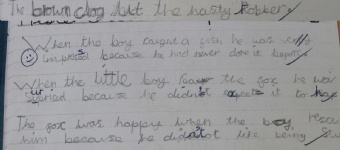 The brown dog bit the hasty robber
When the boy caught a fish he was very
surprised because he had never done it before
When the little boy saw the fox he was
because he didn't expect it to
The fox was happy when the boy
him because he didn't like being